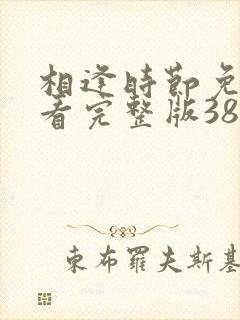 相逢時節免
看完整版38
東布羅夫斯基